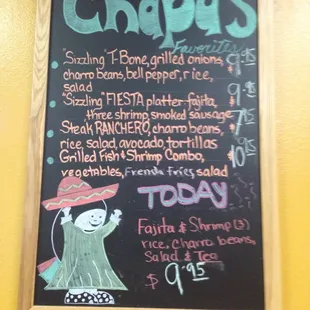 Chapa's
Favorites
"Sizzling" T-Bone, grilled onions,
charro beans, bell pepper, rice,
salad
"Sizzling" FIESTA platter-fajita,
three shrimp, smoked sausage
Steak RANCHERO, charro beans,
rice, salad, avocado, tortillas
Grilled Fish & Shrimp Combo, $10.95
vegetables, French fries, salad
TODAY
Fajita & Shrimp (3)
rice, charro beans,
Salad & Tea
$9.95